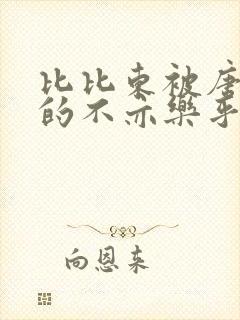 比比东被唐
的不亦乐乎
向恩来